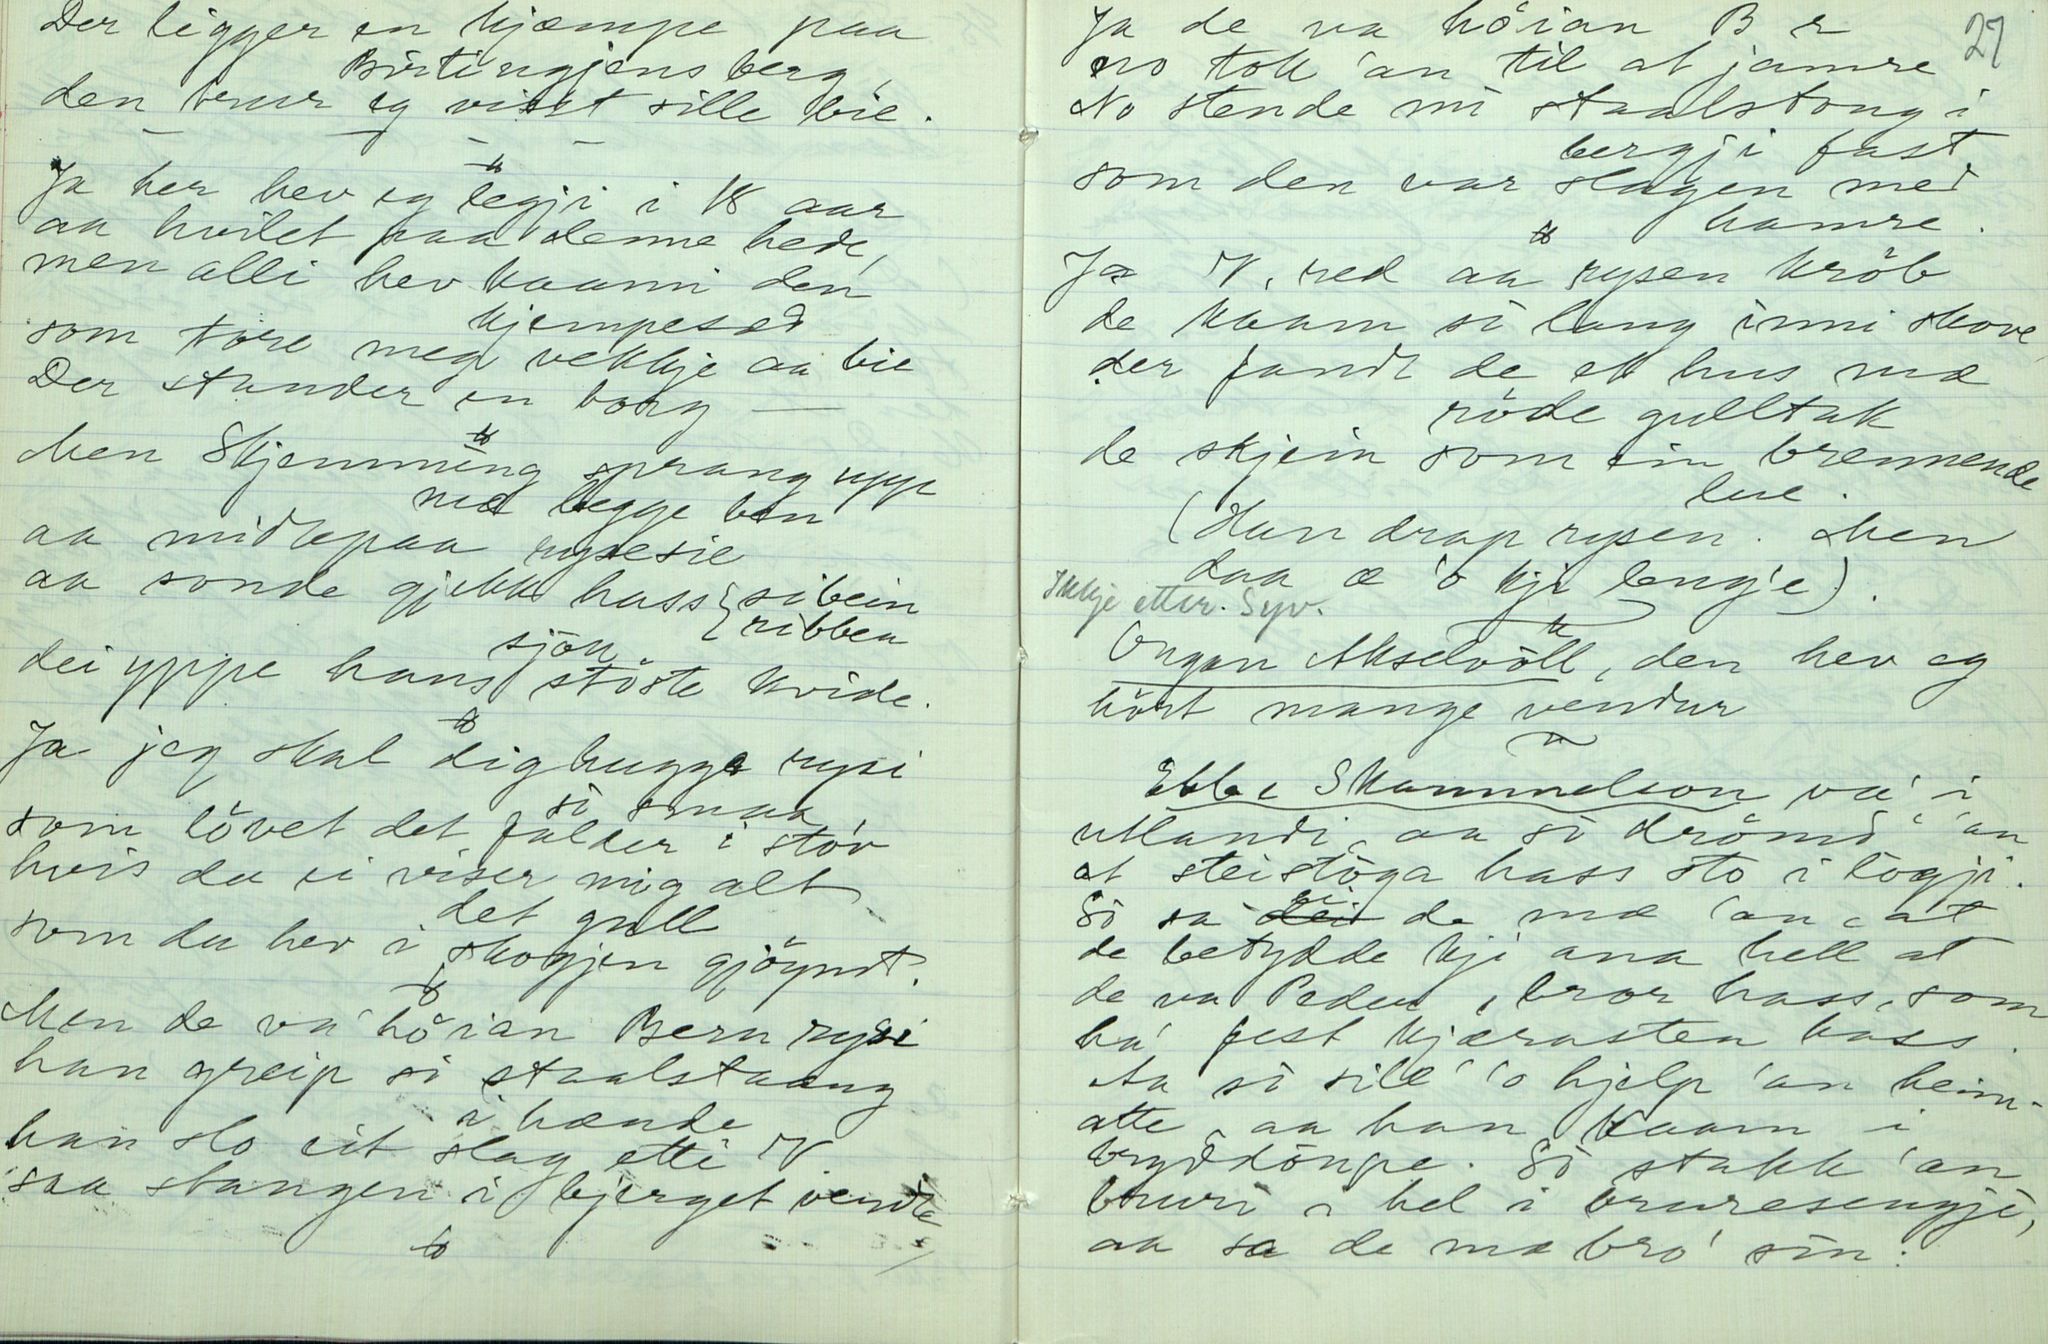 Der ligger en kjæmpe paa
Birtingjens berg,
den trur eg visst sille bie.
Ja her hev eg legji i 18 aar
aa hvilet paa denne hede,
men alli hev kaami den
kjempesæd
som tore meg vekkje aa bie
Der stander en borg —
Men Skjemming sprang upp
med begge ben
aa midtepaa rysesie
aa sonde gjekk hass { sibein
{ ribben
sjøn
dei yppe hans støste kvide.
Ja jeg skal dig hugge rysi
si smaa
som løvet det falder i støv
hvis du ei viser mig alt
det gull
som du hev i skogjen gjöymt.
Men de va' höian Bern rysi
han greip si staalstaang
i hænde
han slo eit slag etti V
saa stangen i bjerget vendte
Ja de va höian B r
27
no tok 'an til at jamre
No stende mi staalstong i
bergji fast
som den var slagen med
hamre.
Ja V. red aa rysen kröb
de kaam si lang inni skove
der fandt de et hus mæ
röde gulltak
de skjein som ein brennende
lue.
(Han drap rysen. Men
daa æ 'o kji lengje).
Ikkje etter. Syv.
Ungan Akselvöll, den hev eg
hört mange vendur
Ebbe Skammelson va' i
utlandi aa så drömd' 'an
at steistöga hass sto i lögji.
Så sa dei de mæ 'an, at
de betydde kji ana hell at
de va Peder, bror hass, som
ha' fest kjærasten hass.
Aa så sill' 'o hjelp 'an heim-
atte aa han kaam i
bryddöupe. Så stakk 'an
bruri i hel i bruresengji,
aa sa de mæ bro' sin: